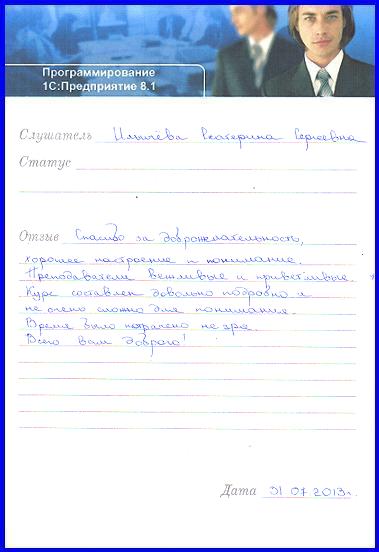 Программирование
1С:Предприятие 8.1
Слушатель Ильичёва Екатерина Сергеевна
Статус
Отзыв Спасибо за доброжелательность,
хорошее настроение и понимание.
Преподаватели вежливые и приветливые.
Курс составлен довольно подробно и
не очень сложно для понимания.
Время было потрачено не зря.
Всего вам доброго!
Дата 31 07 2013г.